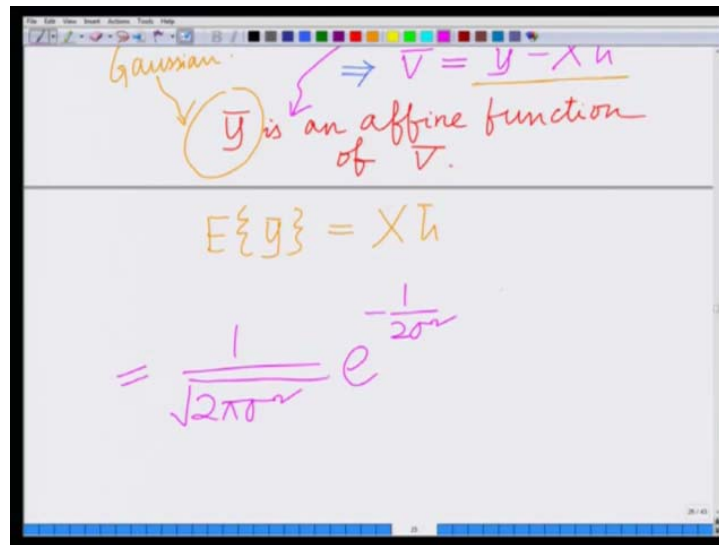 File Edit View Insert Actions Tools Help
Gaussian.
⇒ V̅ = y̅ - X h̅
y̅ is an affine function
of V̅.
E{y̅} = X h̅
= 1/√(2πσ²) e^(-1/(2σ²))
25